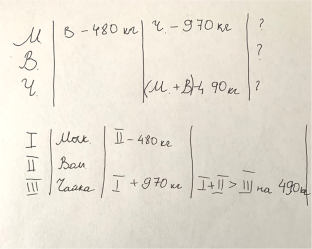 М | В - 480 кг | Ч. - 970 кг | ?
В. | ?
Ч. | (М. + В) - 490 кг | ?
I | Моск. | II - 480 кг
II | Вол
III | Чайка | I + 970 кг | I + II > III на 490 кг